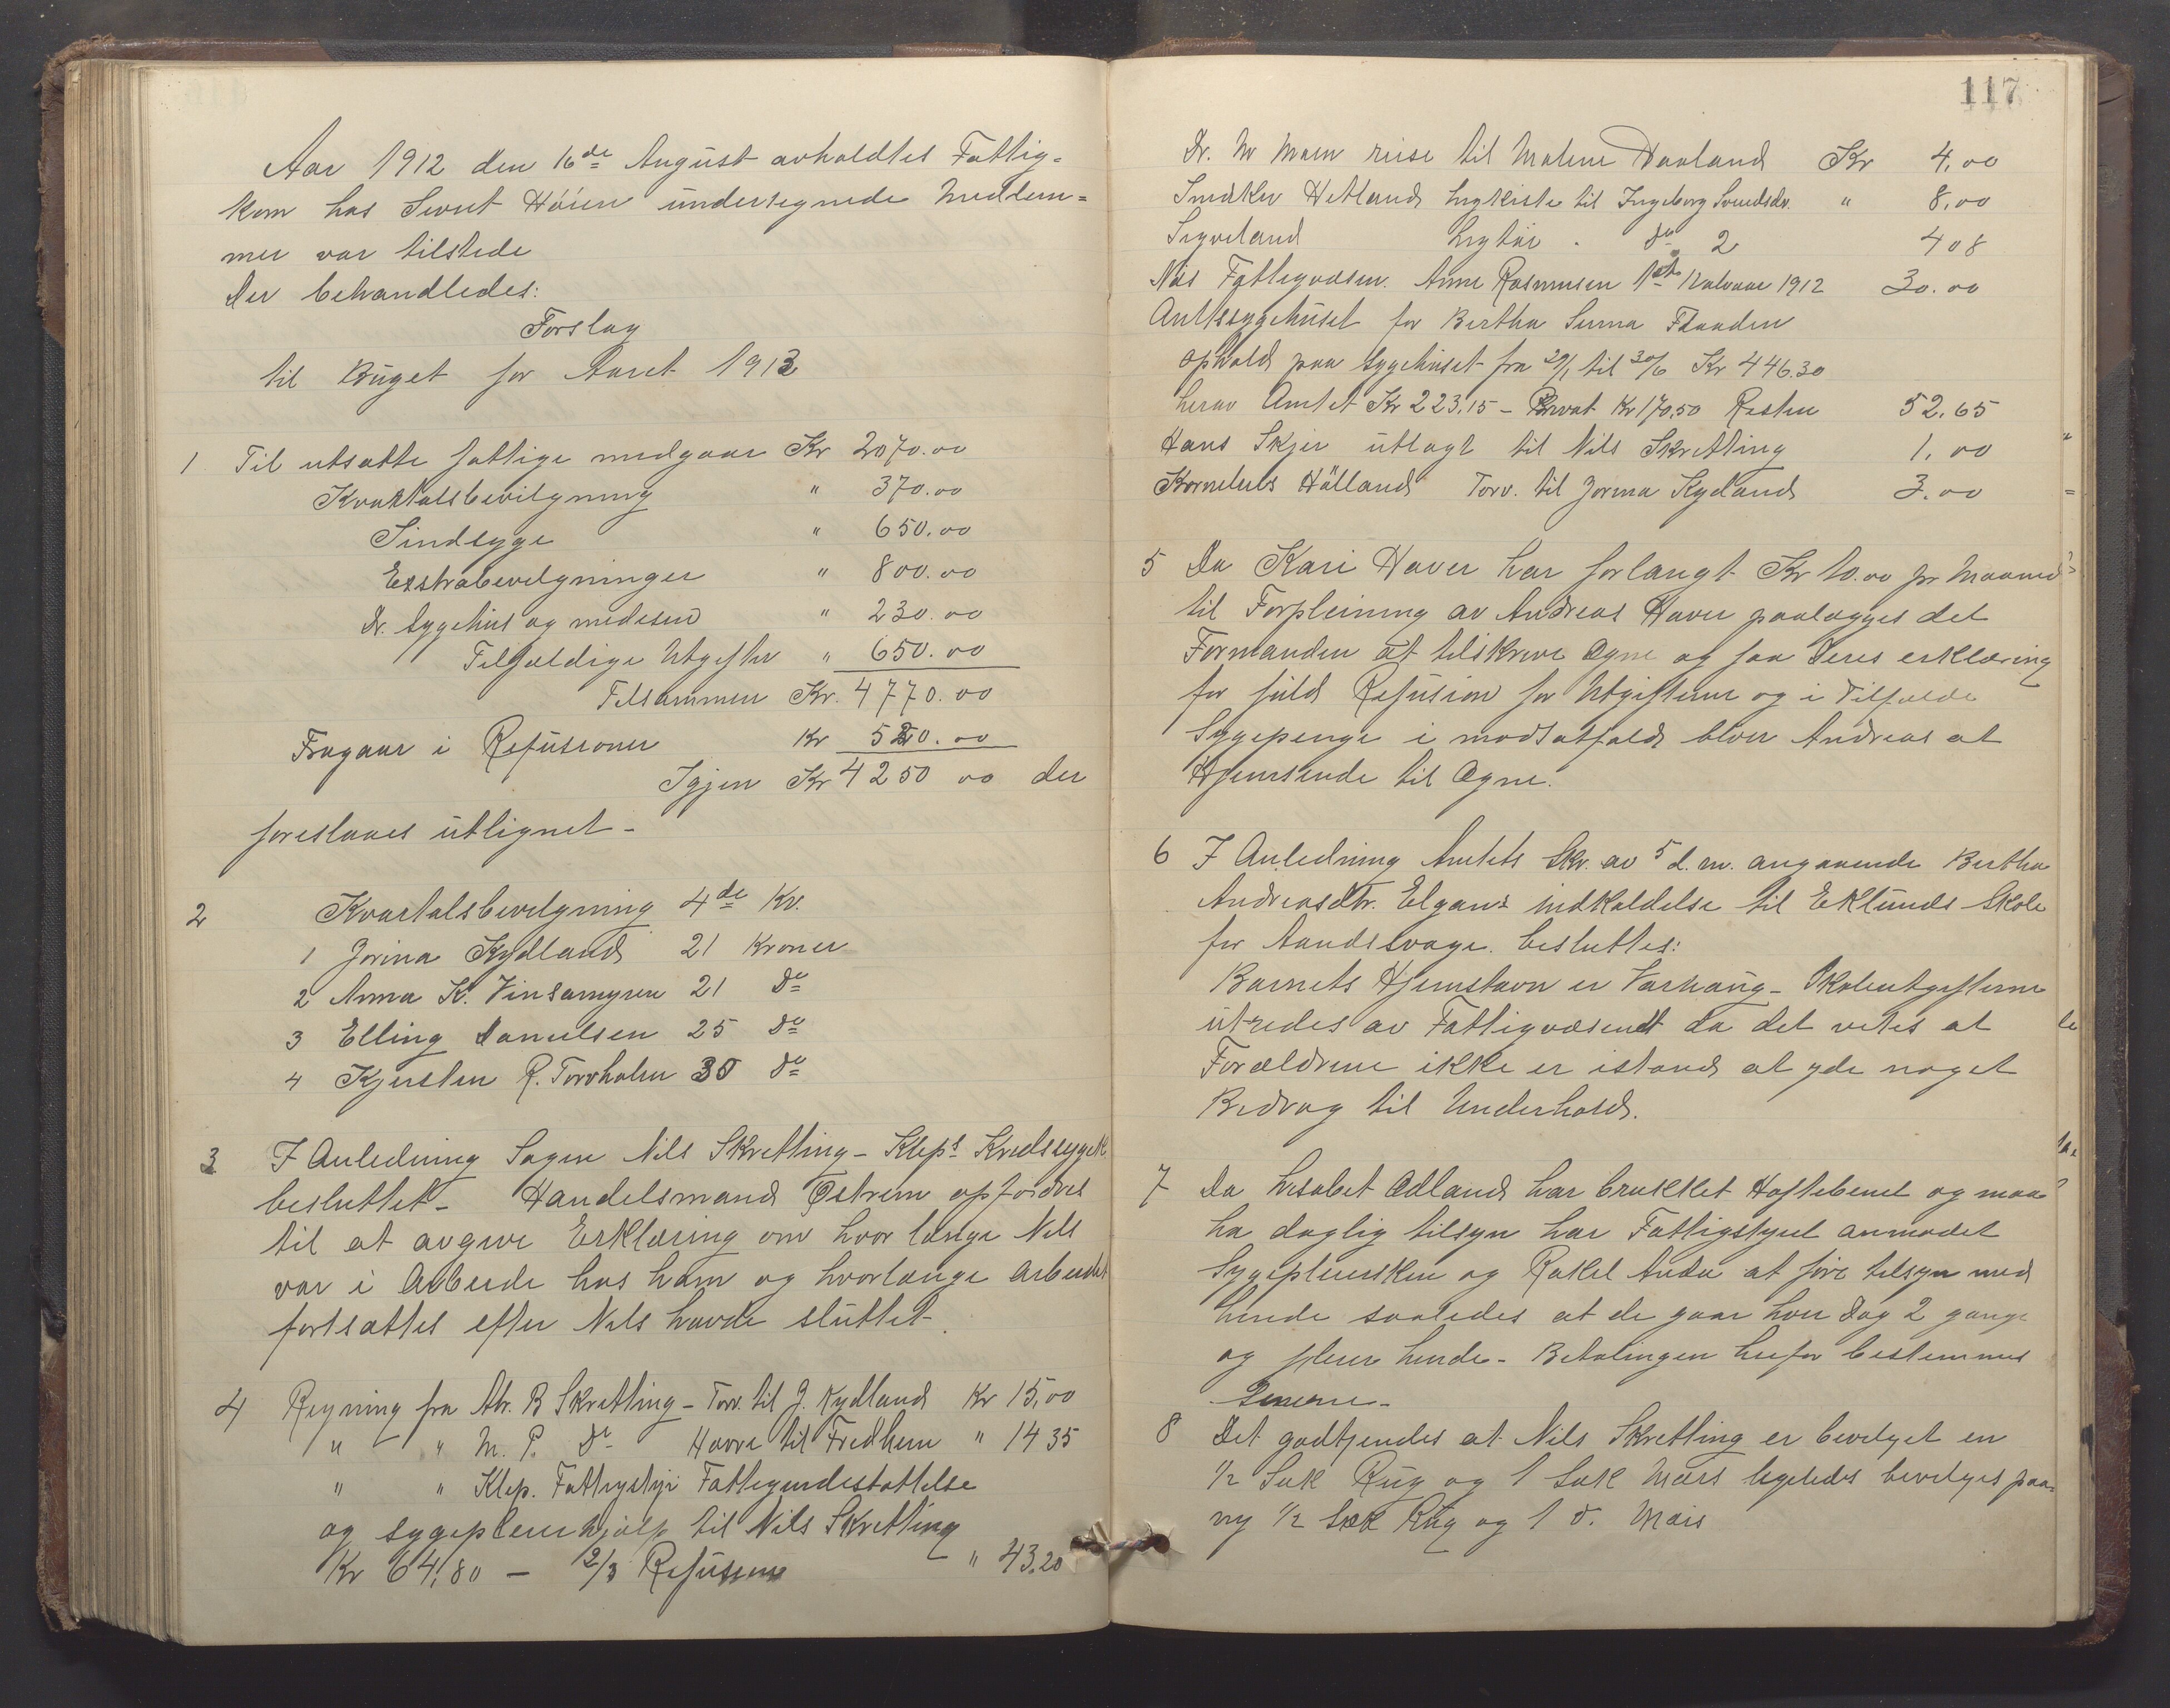 Aar 1912 den 16de August avholdtes Fattig-
kom hos Sivert Höien undersegnede Medlem=
mer var tilstede
Der behandledes:
Forslag
til Büget for Aaret 1913
1 Til utsatte fattige medgaar Kr 2070.00
Kvartalsbevilgning " 370.00
Sindsyge " 650.00
Exstrabevilgninger " 800.00
Dr. Sygehus og medesin " 230.00
Tilfældige Utgifter " 650.00
Tilsammen Kr. 4770.00
Fragaar i Refusioner Kr 520.00
Igjen Kr 4250 00 der
foreslaaes utlignet -
2 Kvartalsbevilgning 4de Kv.
1 Jorina Kydland 21 Kroner
2 Anna K. Vinsamyren 21 do
3 Elling Danielsen 25 do
4 Kjersten R. Torvholm 30 do
3 I Anledning Sagen Nils Skretting - Kleps Kredssygek
besluttet - Handelsmand Østrem opfordres
til at avgive Erklæring om hvor længe Nils
var i Arbeide hos ham og hvorlænge Arbeidet
fortsattes efter Nils havde sluttet.
4 Regning fra Abr. B Skretting - Torv. til J. Kydland Kr 15,00
" " M. P. do Havre til Fredhem " 14 35
" " Klep. Fattigstyr Fattigundestøttelse
og sygepleierhjælp til Nils Skretting
Kr 64,80 - 2/3 Refusion " 43,20
117
Dr. Mr Moen reise til Malene Haaland Kr 4,00
Snedker Hetland Ligkiste til Ingeborg Svendsdr. " 8,00
Sigveland Ligtöi . do 2 4 08
Næs Fattigvæsen. Anne Rasmusen 1ste Halvaar 1912 30.00
Amtssygehuset for Bertha Serina
ophold paa sygehuset fra 29/1 til 30/6 Kr 446.30
herav Amtet Kr 223.15 - Privat Kr 170,50 Resten 52,65
Hans Skjer utlagt til Nils Skretting 1,00
Kornelius Hålland Torv. til Jorina Kydland 3.00
5 Da Kari Haver har forlangt Kr 10.00 pr Maaned
til Forpleining av Andreas Haver paalægges det
Formanden at tilskrive Ogne og faa deres erklæring
for fuld Refusion for Utgifterne og i Tilfælde
Sygepenge i modsatfald bliver Andreas at
Hjemsende til Ogne.
6 I Anledning Amtets Skr. av 5 d.m. angaaende Bertha
Andreasdtr. Elgane indkaldelse til Eklunds Skole
for Aandssvage. besluttes:
Barnets Hjemstavn er Varhaug - Skoleutgifterne
utredes av Fattigvæsenet da det vites at
Forældrene ikke er istand at yde noget
Bidrag til Underhold.
7 Da Lisabet Ødland har brukket Hoftebenet og maa
ha daglig tilsyn har Fattigstyret anmodet
Sygepleiersken og Rakel Anda at före tilsyn med
hende saaledes at de gaar hver Dag 2 gange
og pleier hende - Betalingen herfor bestemmes
Senere -
8 Det godtjendes at Nils Skretting er bevilget en
1/2 Sæk Rüg og 1 Sæk Mais ligeledes bevilges paa-
ny 1/2 Sæk Rüg og 1 d. Mais